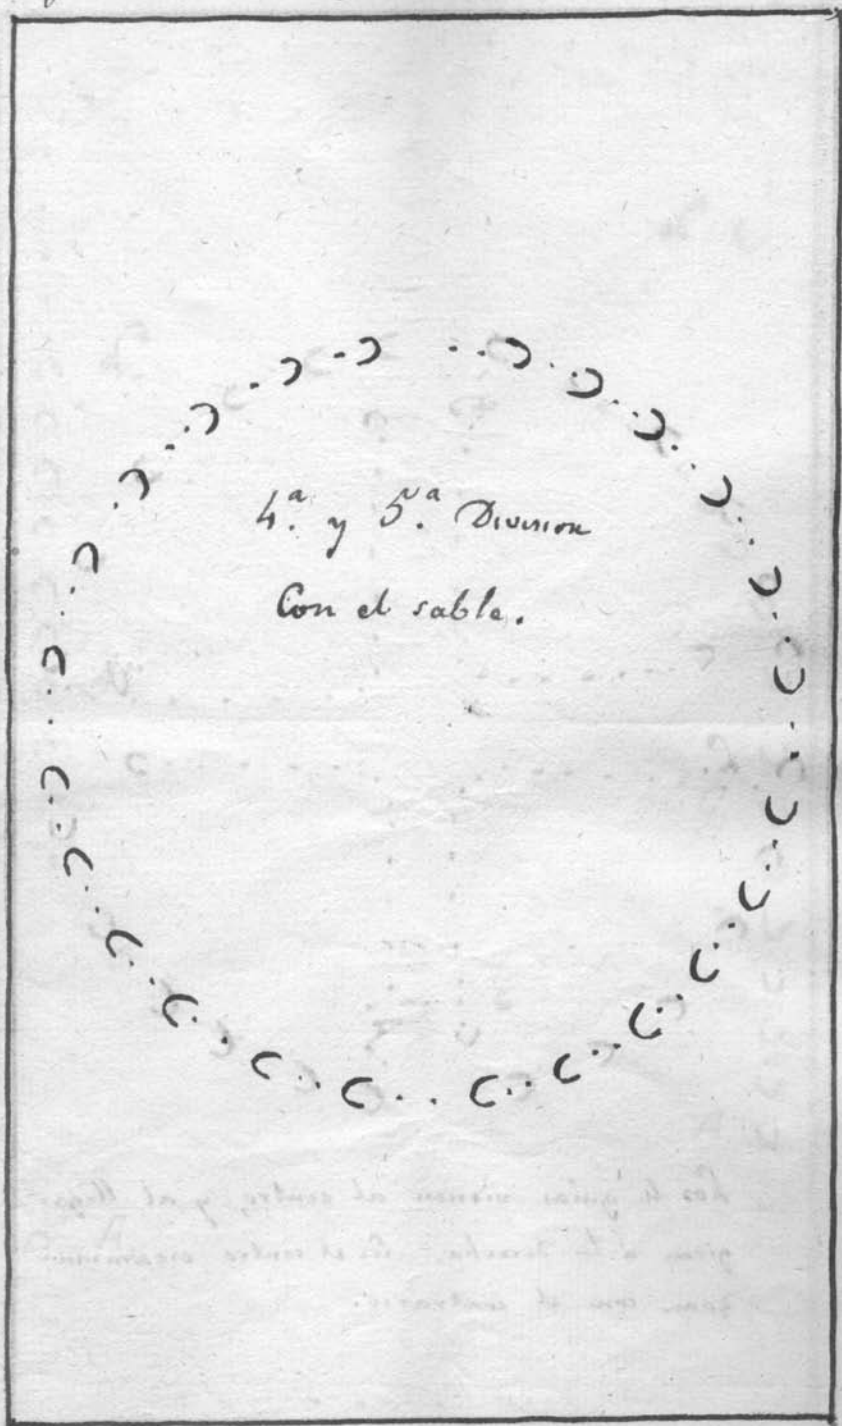 4.ª y 5.ª Division
Con el sable.